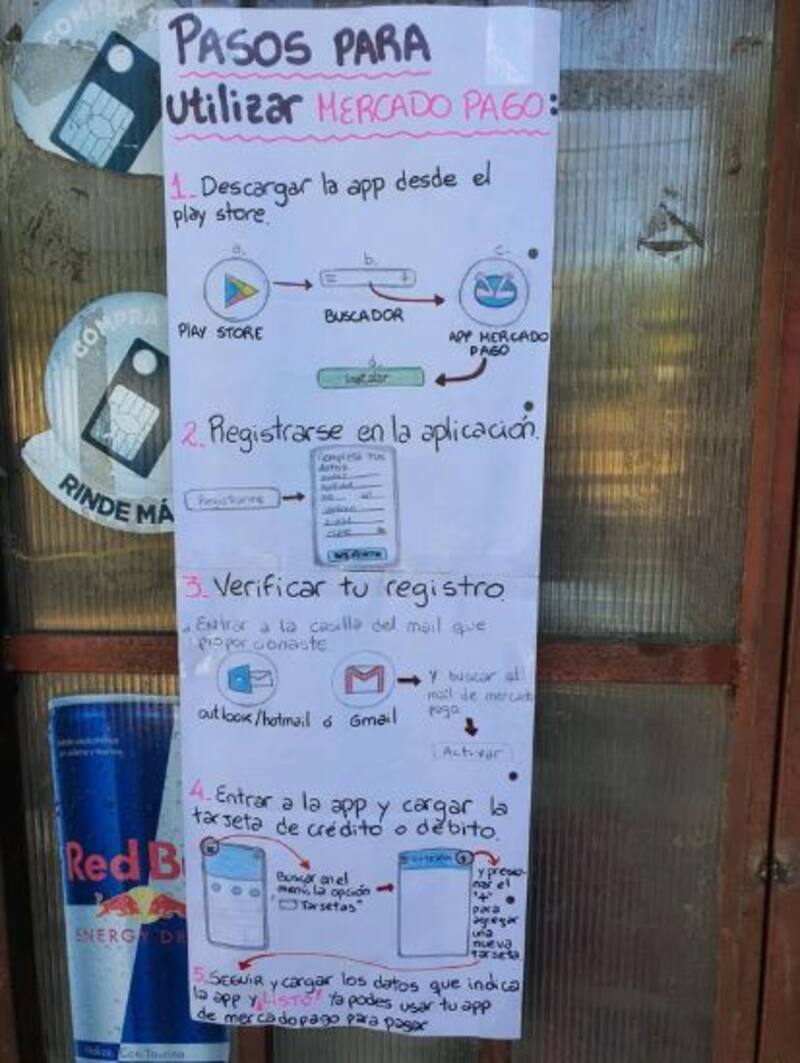 PASOS PARA
utilizar MERCADO PAGO:
1. Descargar la app desde el
play store.
a.
b.
c.
PLAY STORE
BUSCADOR
APP MERCADO
PAGO
d.
Instalar
2. Registrarse en la aplicación.
Registrarme
Completá tus
datos
3. Verificar tu registro.
Entrar a la casilla del mail que
proporcionaste
outlook/hotmail ó Gmail
y buscar el
mail de mercado
pago
Activar
4. Entrar a la app y cargar la
tarjeta de crédito o débito.
Buscar en el
menú, la opción
"Tarjetas"
y presio-
nar el
"+"
para
agregar
una
nueva
tarjeta.
5. SEGUIR y cargar los datos que indica
la app y ¡LISTO! Ya podes usar tu app
de mercado pago para pagar
COMPRA
COMPRA
RINDE MÁ
Red Bu
ENERGY DR
Con Taurina